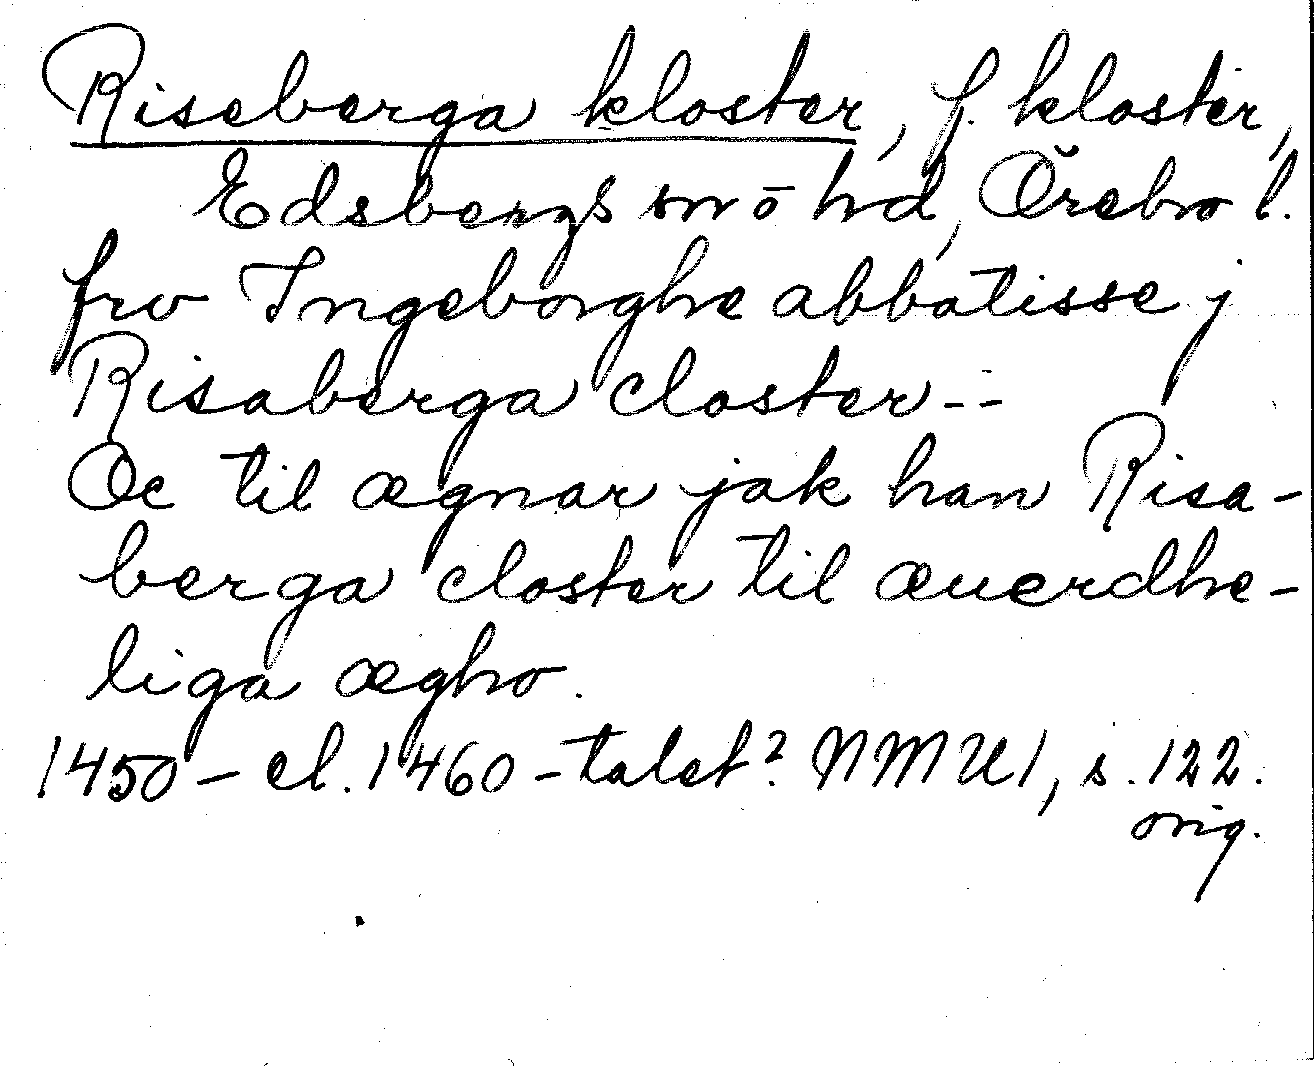 Riseberga kloster, f. kloster,
Edsbergs sn o hd, Örebro l.
frv Ingeborghe abbatisse j
Risaberga closter--
Oc til ægnar jak han Risa-
berga closter til æuerdhe-
liga ægho.
1450- el. 1460-talet? NMU 1, s. 122.
orig.